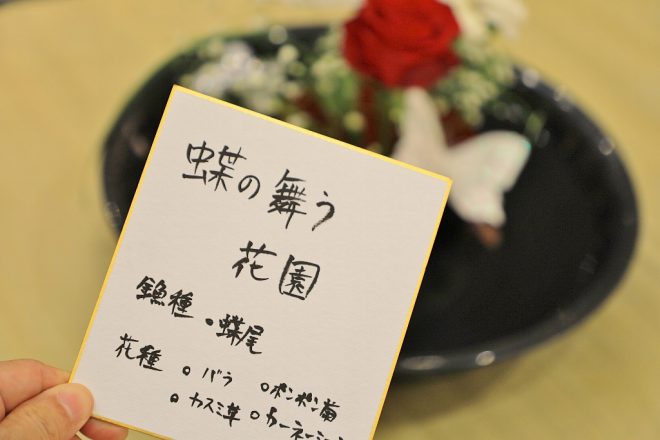 蝶の舞う
花園
魚種 。蝶尾
花種 。バラ 。ポンポン菊
。カスミ草 。カーネーション